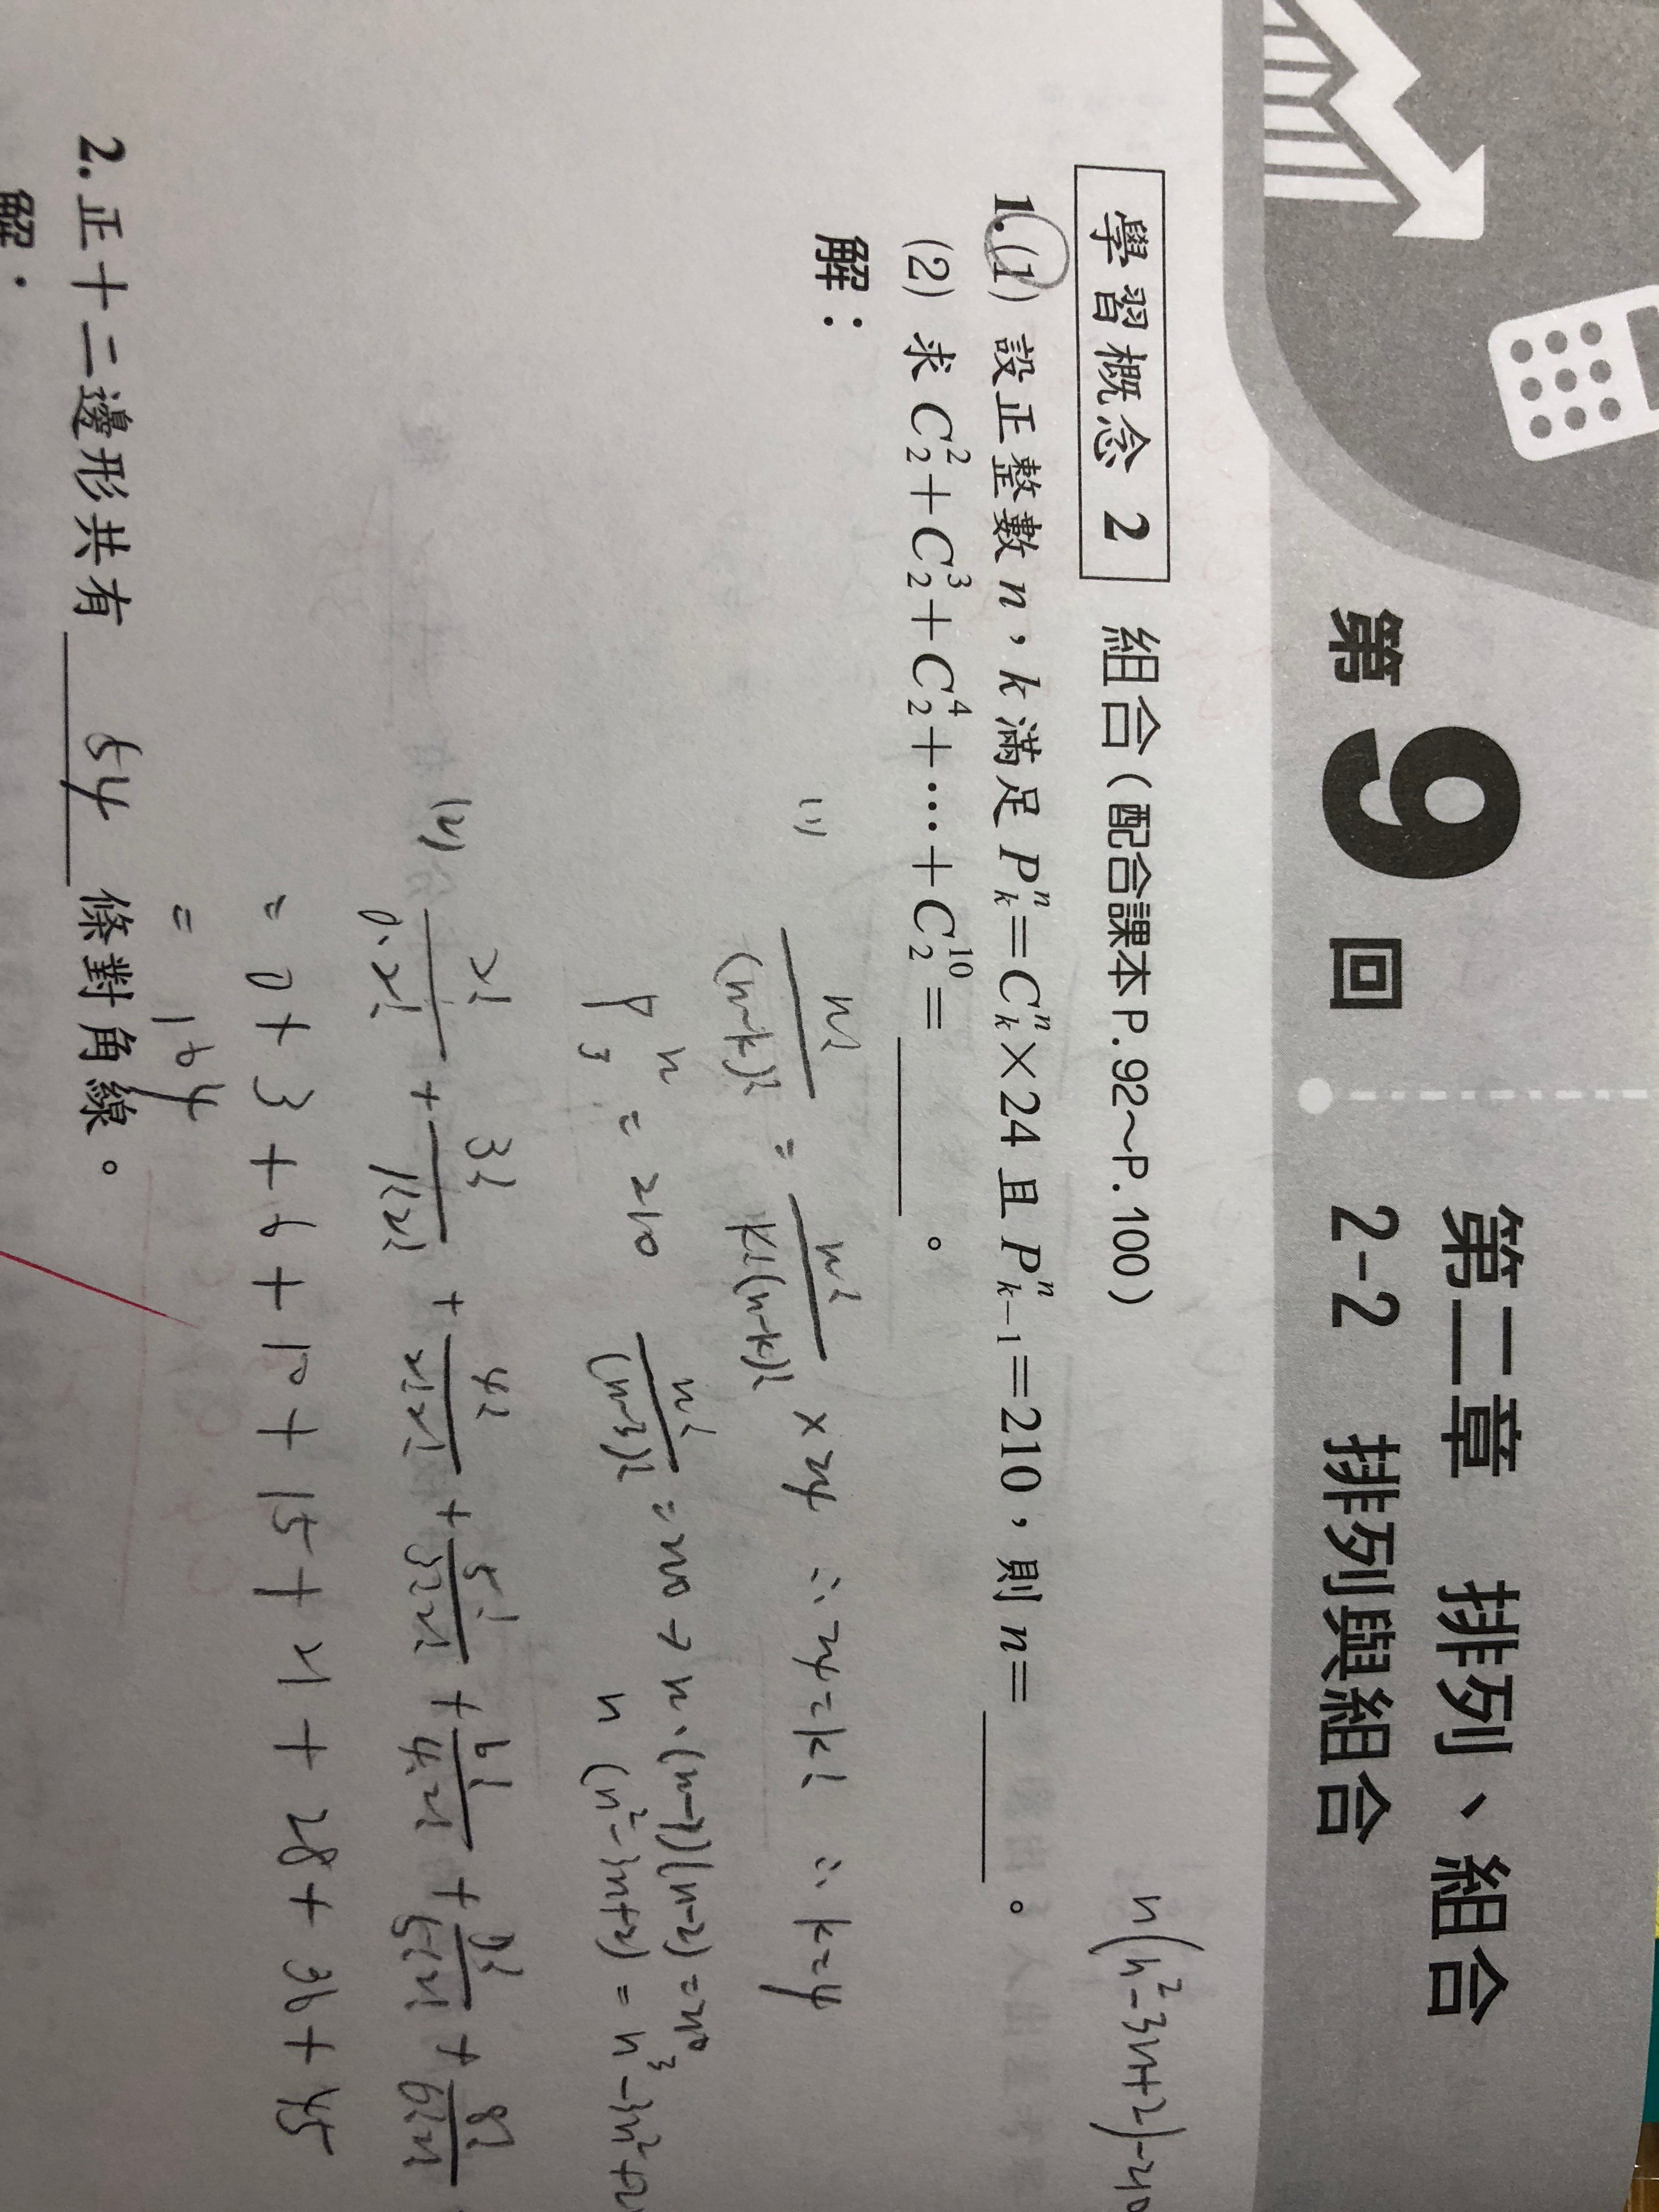 第9回
第二章 排列、組合
2-2 排列與組合
n(n²-3n+2)-210
學習概念 2 組合(配合課本P.92~P.100)
1.(1) 設正整數n,k滿足Pₖⁿ=Cₖⁿ×24且Pₖ₋₁ⁿ=210,則n=______。
(2) 求C₂²+C₂³+C₂⁴+⋯+C₂¹⁰=______。
解:
(1) n!/(n-k)! = n!/k!(n-k)! × 24 ∴ 24=k! ∴ k=4
P₃ⁿ = 210 n!/(n-3)! = 210 → n·(n-1)(n-2)=210
n(n²-3n+2) = n³-3n²+2n
(2) 2!/0!2! + 3!/1!2! + 4!/2!2! + 5!/3!2! + 6!/4!2! + 7!/5!2! + 8!/6!2!
= 0 + 3 + 6 + 10 + 15 + 21 + 28 + 36 + 45
= 164
2.正十二邊形共有 54 條對角線。
解: